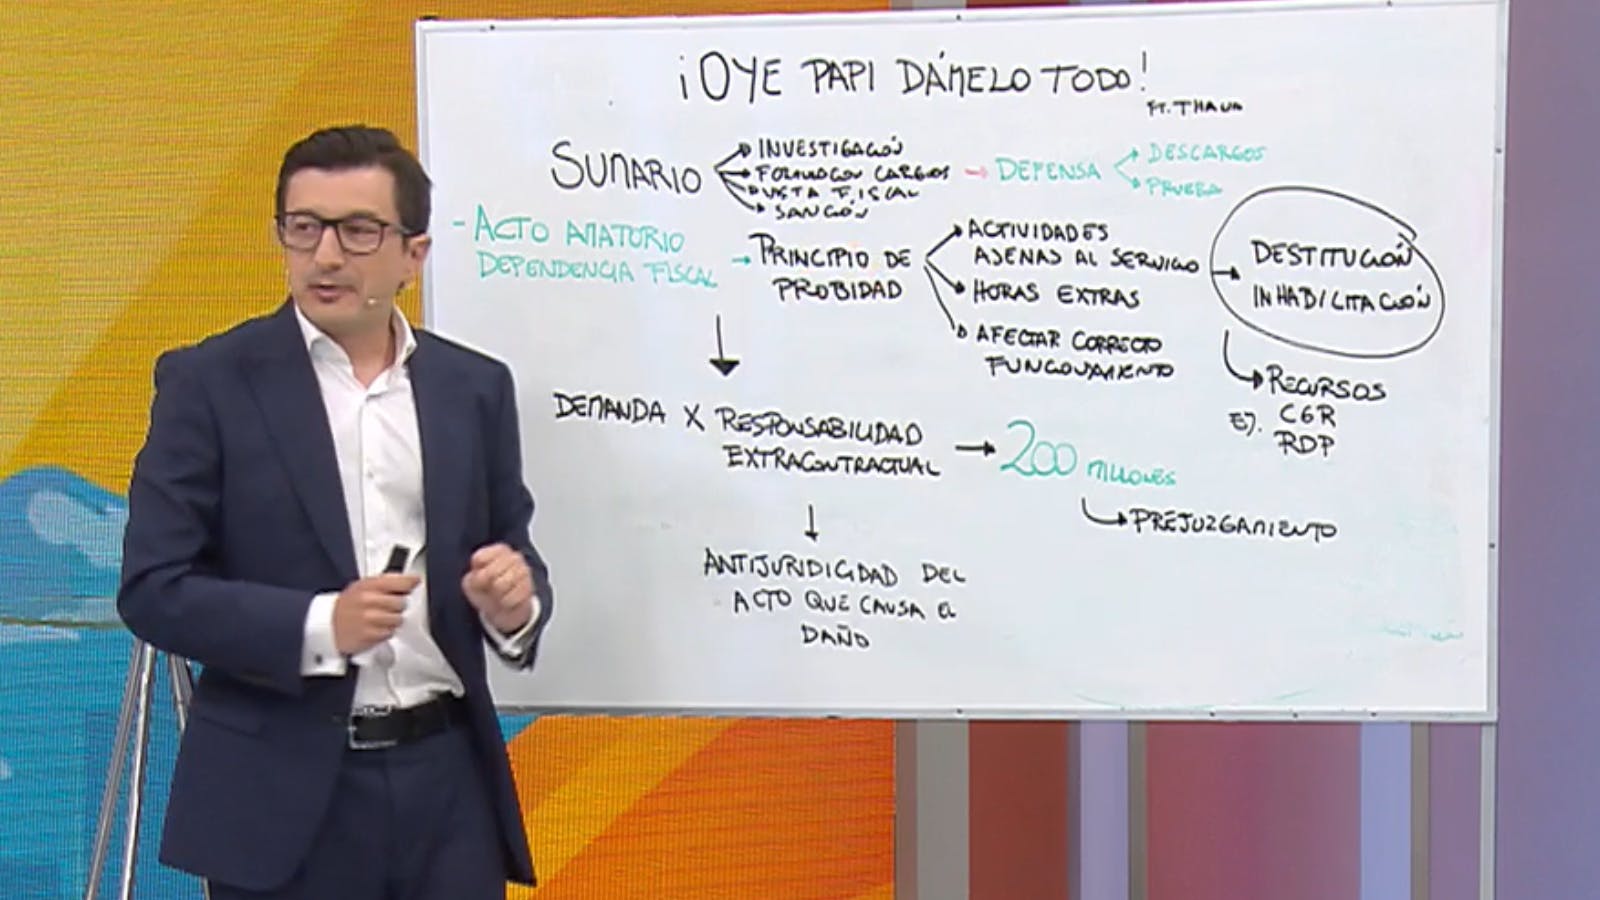 ¡OYE PAPI DÁMELO TODO!
FT. THALIA
SUMARIO
INVESTIGACIÓN
FORMULACION CARGOS
VISTA FISCAL
SANCIÓN
DEFENSA
DESCARGOS
PRUEBA
- ACTO AMATORIO
DEPENDENCIA FISCAL
PRINCIPIO DE
PROBIDAD
ACTIVIDADES
AJENAS AL SERVICIO
HORAS EXTRAS
AFECTAR CORRECTO
FUNCIONAMIENTO
DESTITUCIÓN
INHABILITACIÓN
RECURSOS
EJ. CGR
RDP
DEMANDA X RESPONSABILIDAD
EXTRACONTRACTUAL
200 MILLONES
PREJUZGAMIENTO
ANTIJURIDICIDAD DEL
ACTO QUE CAUSA EL
DAÑO